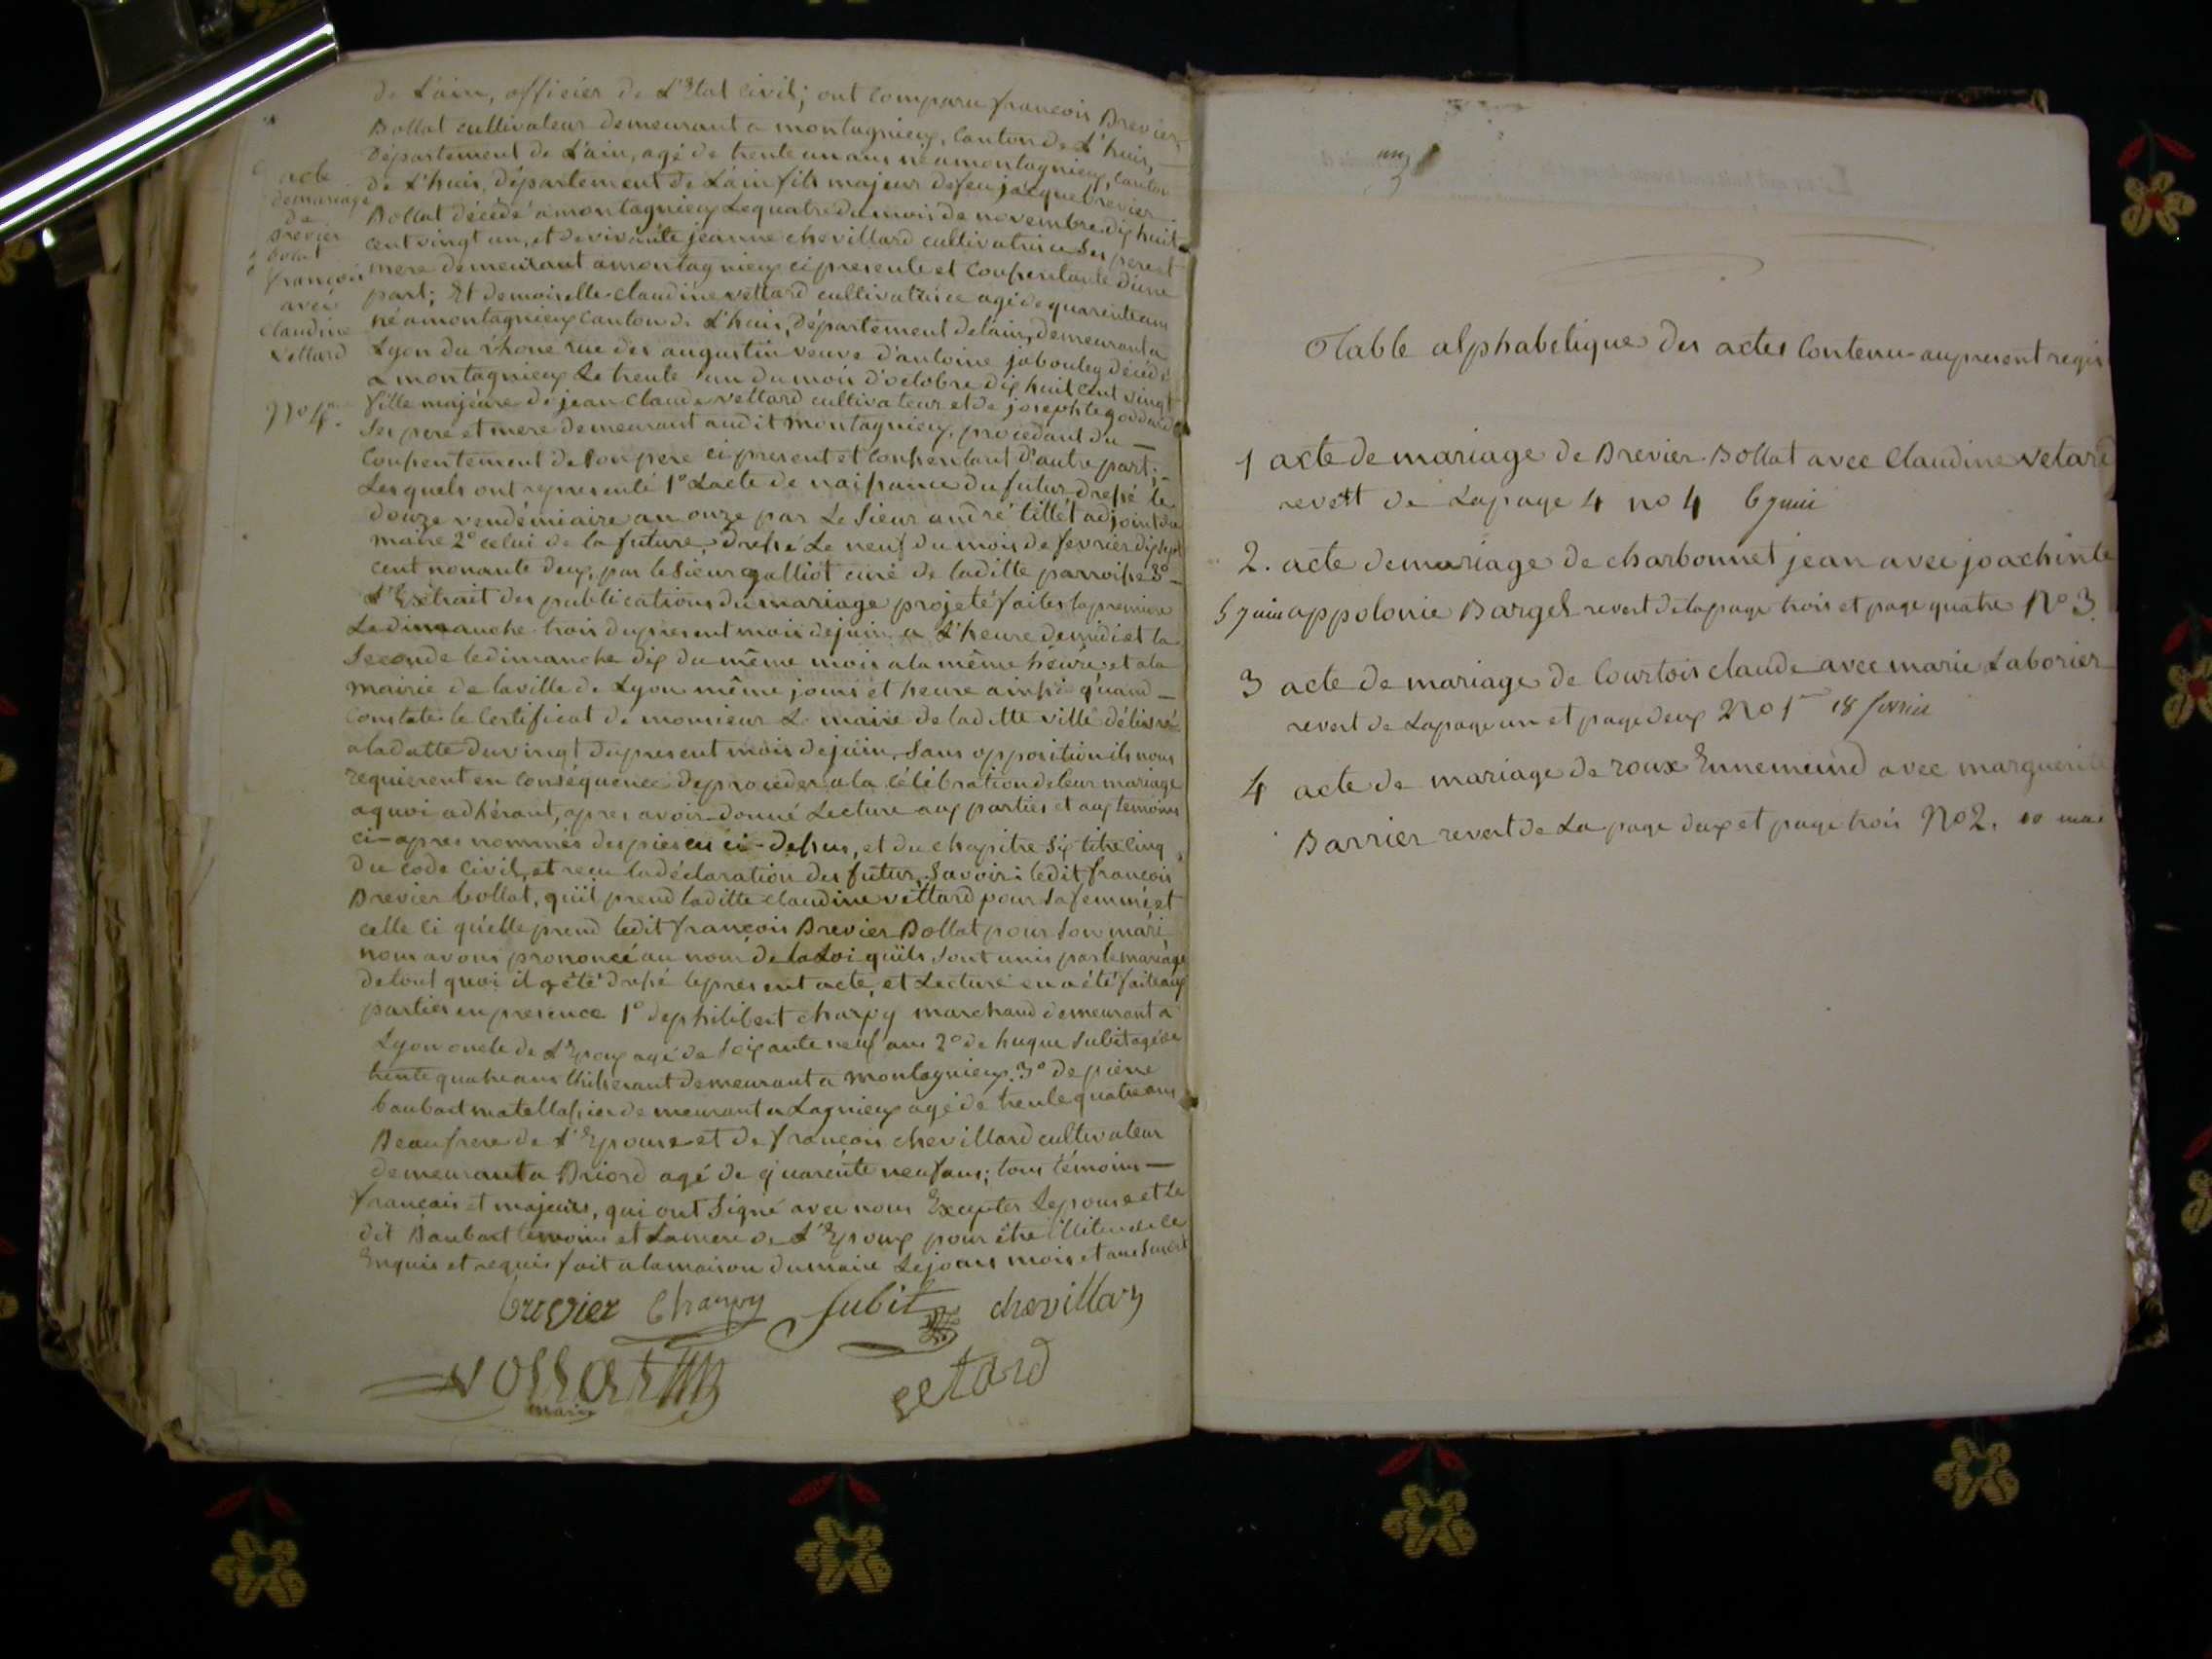 de L'ain, officier de L'Etat Civil; ont Comparu françois Brevier
Bollat cultivateur demeurant a montagnieux, Canton de L'huis,
Département de L'ain, agé de trente un ans né a montagnieux, Canton
de L'huis, Département de L'ain fils majeur de feu jacque brevier
Bollat décédé a montagnieux Le quatre du mois de novembre dix huit
cent vingt un, et de vivante jeanne chevillard cultivatrice Ses pere et
mere demeurant a montagnieux ci presente et Consentante d'une
part; Et demoiselle Claudine vettard cultivatrice agé de quarente ans
né a montagnieux Canton de L'huis, Département de lain, demeurant a
Lyon du rhone rue des augustin veuve d'antoine jabouley décédé
a montagnieux Le trente un du mois d'octobre dix huit cent vingt
fille majeure de jean Claude vettard cultivateur et de josephte goddard
Ses pere et mere demeurant au dit montagnieux, procédant du
Consentement de son pere ci present et Consentant d'autre part;
Les quels ont representé 1° Lacte de naissance du futur dressé le
douze vendémiaire an onze par Le Sieur andré tillet adjoint du
maire 2° celui de la future, dressé Le neuf du mois de fevrier dix sept
cent nonante deux, par le Sieur galliot curé de laditte parroisse 3°
L'Extrait des publications du mariage projeté faites la premiere
Le dimanche trois du present mois de juin a L'heure de midi et la
Seconde le dimanche dix du même mois a la même heure et a la
mairie de la ville de Lyon même jours et heure ainsi quand
Constate le Certificat de monsieur Le maire de la ditte ville délivré
a la datte du vingt du present mois de juin. Sans opposition ils nous
requierent en Conséquence de proceder a la Célébration de leur mariage
a quoi adhérant, apres avoir donné Lecture aux parties et aux temoins
ci-apres nommés des pieces ci-dessus, et du chapitre Six titre Cinq
du code Civil, et reçu la déclaration des futur, Savoir: ledit françois
Brevier bollat, qu'il prend laditte claudine vettard pour Sa femme et
celle ci qu'elle prend ledit françois Brevier Bollat pour Son mari
nous avons prononcé au nom de la Loi qu'ils Sont unis par le mariage
de tout quoi il a été dressé le present acte, et Lecture en a été faite aux
parties en presence 1° de philibert charpy marchand demeurant a
Lyon oncle de L'Epoux agé de Soixante neuf ans 2° de hugue Subit agé de
trente quatre ans demeurant a montagnieux. 3° de pierre
baubart matellassier demeurant a Lagnieux agé de trente quatre ans
Beaufrere de L'Epouse et de françois chevillard cultivateur
demeurant a Briord agé de quarente neuf ans; tous témoins
français et majeurs, qui ont Signé avec nous Excepter Lepouse et le
dit Baubart témoins et La mere de L'Epoux pour être illiteré de ce
Enquis et requis fait a la maison du maire Le jours mois et an Susdit
brevier Charpy Subit chevillard
maire vetard
acte
de mariage
de
Brevier
bollat
françois
avec
Claudine
vettard
No 4.
Table alphabetique des actes Contenu au present regis
1 acte de mariage de Brevier Bollat avec Claudine vetard
revert de Lapage 4 no 4 6 juin
2. acte de mariage de charbonnet jean avec joachinte
5 juin appolonie Bargel revert de lapage trois et page quatre No 3.
3 acte de mariage de Courtois claude avec marie Laborier
revert de Lapage un et page deux No 1 18 fevrier
4 acte de mariage de roux Ennemeind avec marguerite
Barrier revert de La page deux et page trois No 2. 10 mai